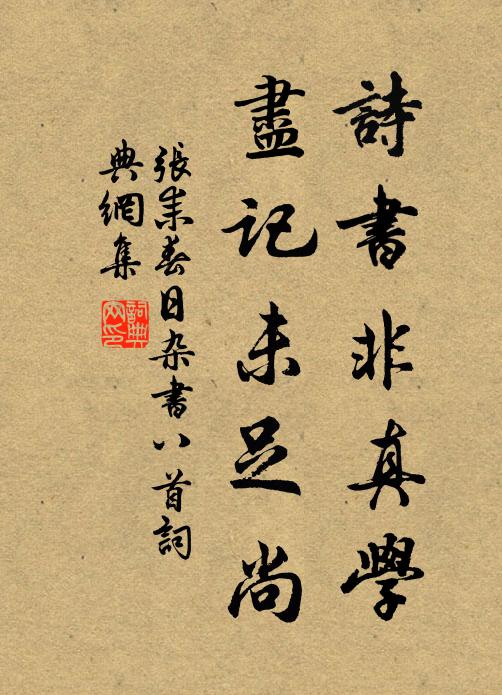 詩書非真學
盡記未足尚
張耒春日杂書八首詞
典網集
詞典
网印